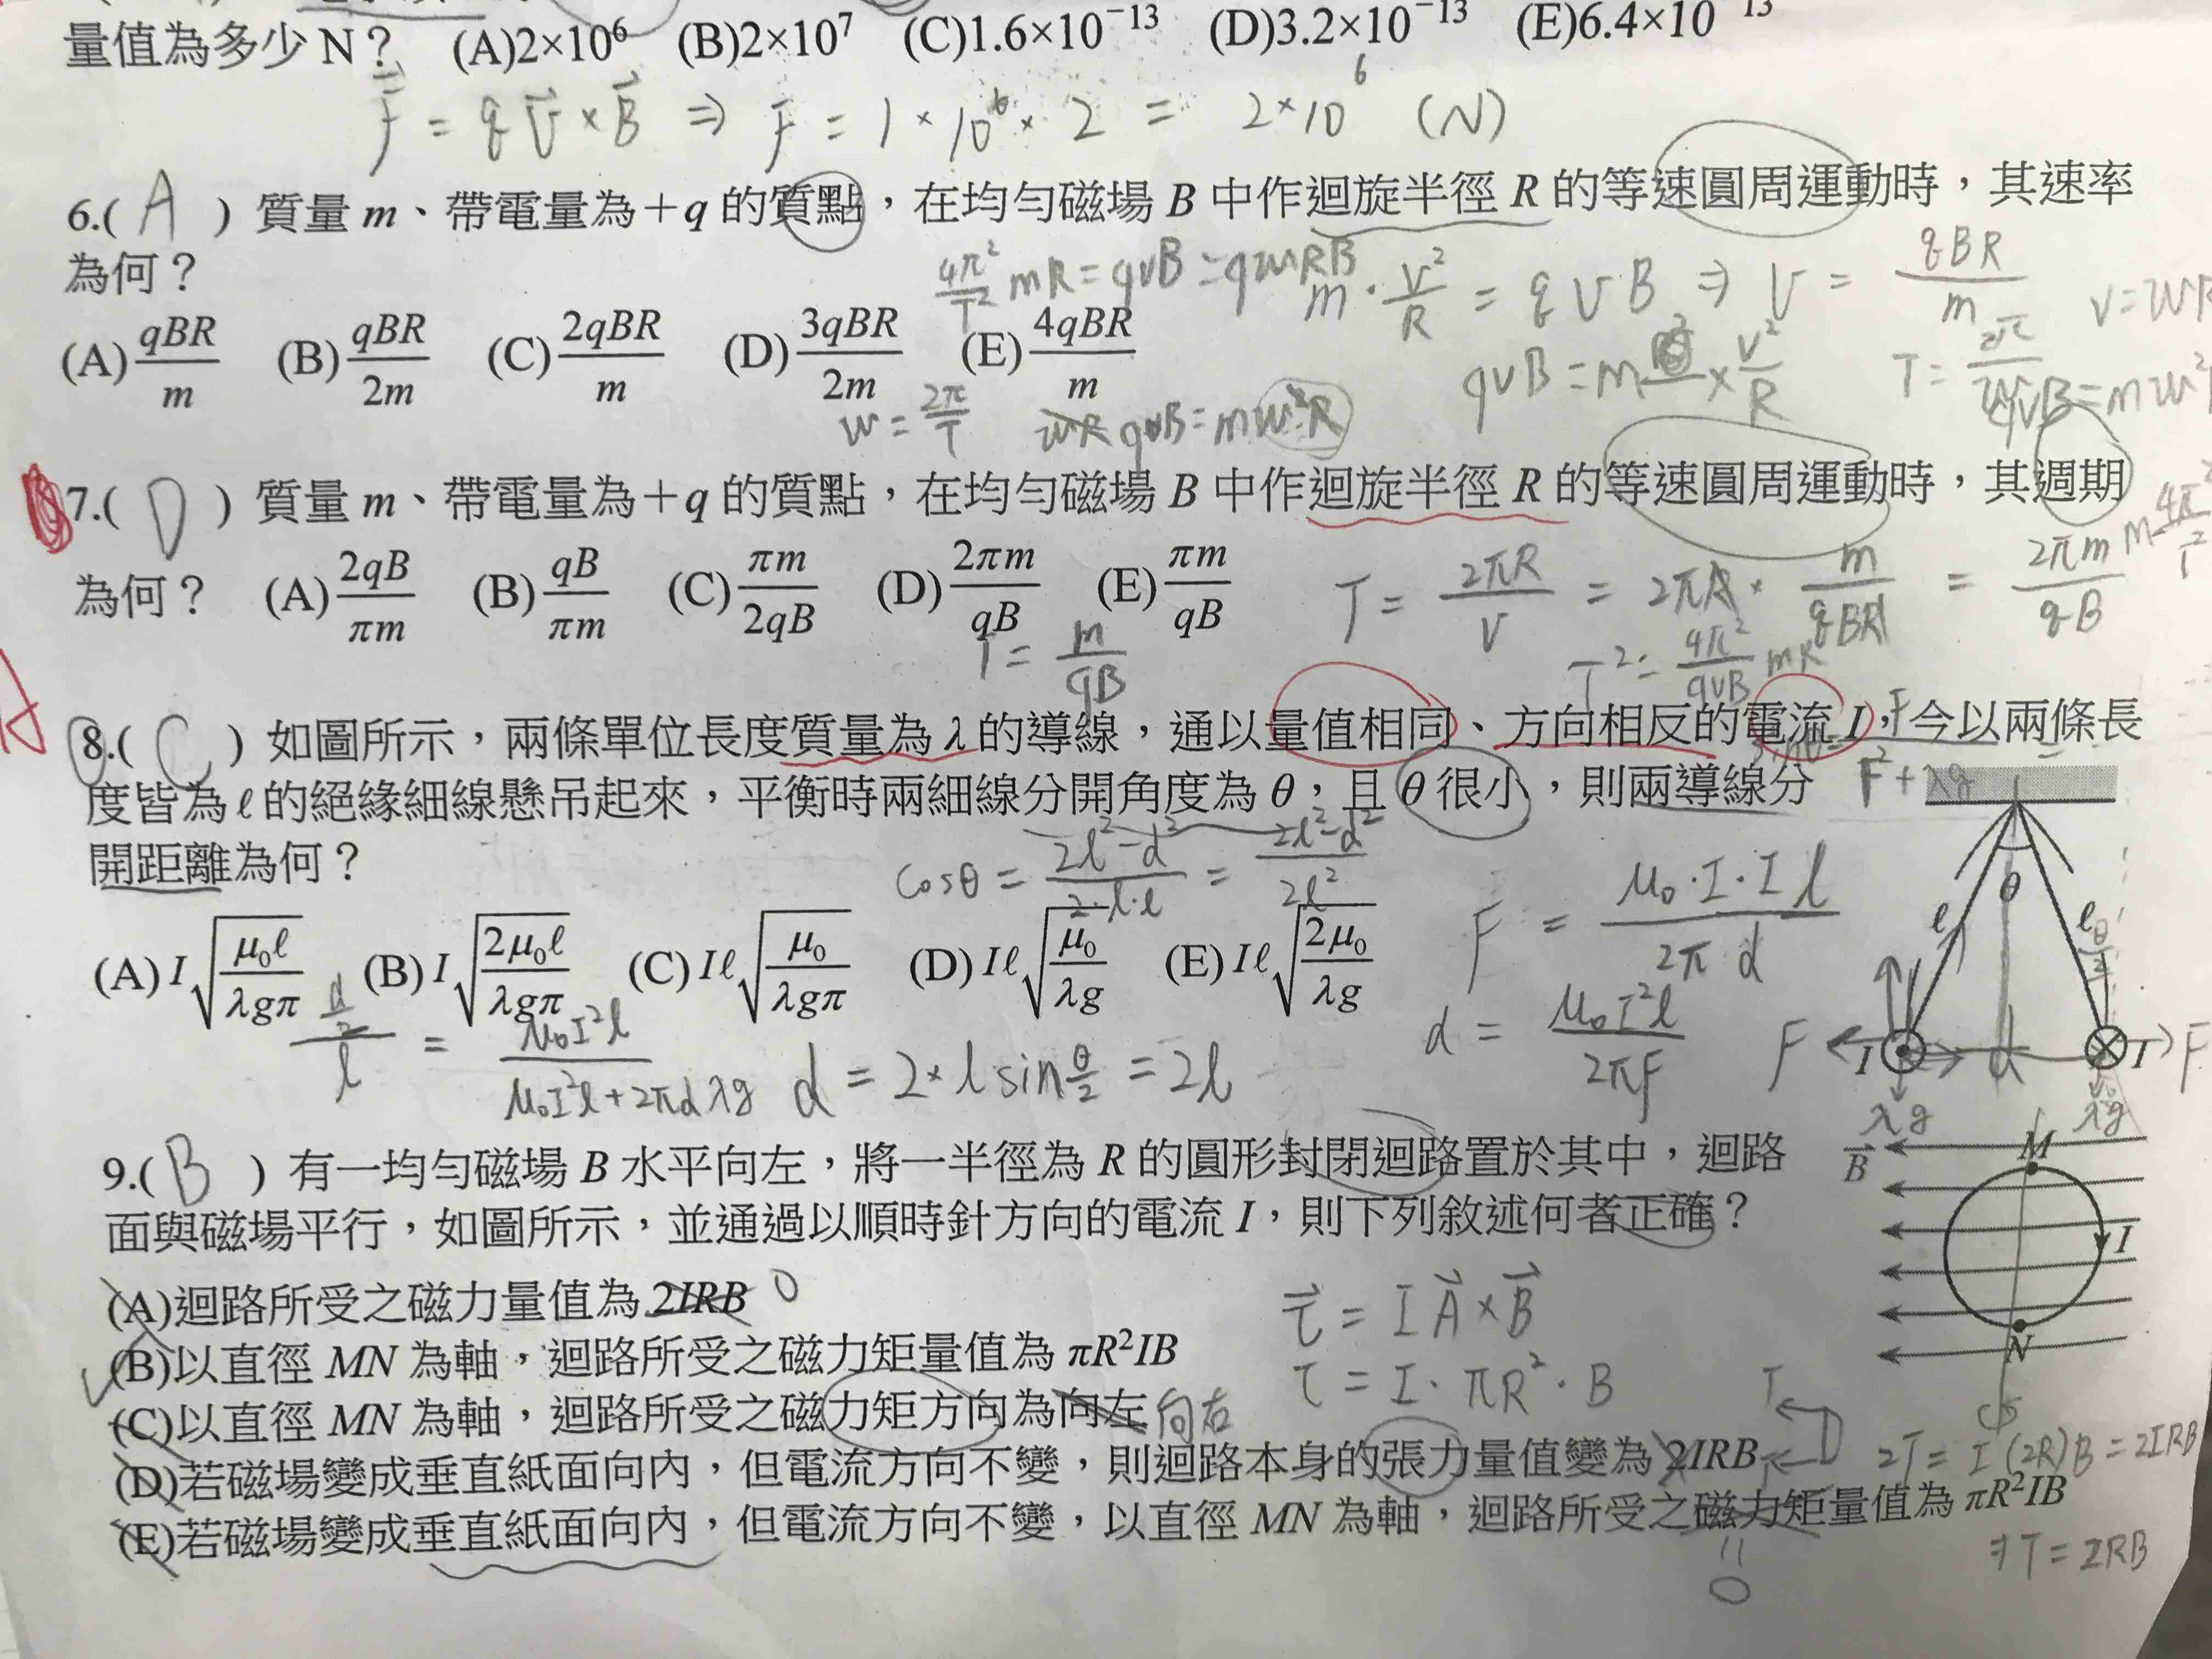 量值為多少 N？ (A)2×10⁶ (B)2×10⁷ (C)1.6×10⁻¹³ (D)3.2×10⁻¹³ (E)6.4×10⁻¹³
F = qv×B ⇒ F = 1×10⁶×2 = 2×10⁶ (N)
6.( A ) 質量 m、帶電量為＋q 的質點，在均勻磁場 B 中作迴旋半徑 R 的等速圓周運動時，其速率
為何？
4π²/T² mR = qvB = qwRB
m·v²/R = qvB ⇒ v = qBR/m
(A) qBR/m (B) qBR/2m (C) 2qBR/m (D) 3qBR/2m (E) 4qBR/m
w = 2π/T
qvB = mw²R
7.( D ) 質量 m、帶電量為＋q 的質點，在均勻磁場 B 中作迴旋半徑 R 的等速圓周運動時，其週期
為何？ (A) 2qB/πm (B) qB/πm (C) πm/2qB (D) 2πm/qB (E) πm/qB
T = 2πR/v = 2πR × m/qBR = 2πm/qB
T = m/qB
T² = 4π²/qvB mR
A
8.( C ) 如圖所示，兩條單位長度質量為 λ 的導線，通以量值相同、方向相反的電流 I，今以兩條長
度皆為 ℓ 的絕緣細線懸吊起來，平衡時兩細線分開角度為 θ，且 θ 很小，則兩導線分
開距離為何？
cosθ = (2l²−d²)/(2·l·l) = (2l²−d²)/2l²
F = μ₀·I·I l/2π d
(A) I√(μ₀ℓ/λgπ) (B) I√(2μ₀ℓ/λgπ) (C) Iℓ√(μ₀/λgπ) (D) Iℓ√(μ₀/λg) (E) Iℓ√(2μ₀/λg)
(d/2)/l = μ₀I²l/(μ₀I²l+2πdλg)
d = 2×l sin θ/2 = 2l
d = μ₀I²l/2πF
θ
ℓ ℓ θ/2
F I d I F
λg λg
9.( B ) 有一均勻磁場 B 水平向左，將一半徑為 R 的圓形封閉迴路置於其中，迴路
面與磁場平行，如圖所示，並通過以順時針方向的電流 I，則下列敘述何者正確？
B M
I
N
(A)迴路所受之磁力量值為 2IRB 0
(B)以直徑 MN 為軸，迴路所受之磁力矩量值為 πR²IB
(C)以直徑 MN 為軸，迴路所受之磁力矩方向為向左 向右
(D)若磁場變成垂直紙面向內，但電流方向不變，則迴路本身的張力量值變為 2IRB
(E)若磁場變成垂直紙面向內，但電流方向不變，以直徑 MN 為軸，迴路所受之磁力矩量值為 πR²IB
τ = IA×B
τ = I·πR²·B
2T = I(2R)B = 2IRB
⇒ T = IRB
0